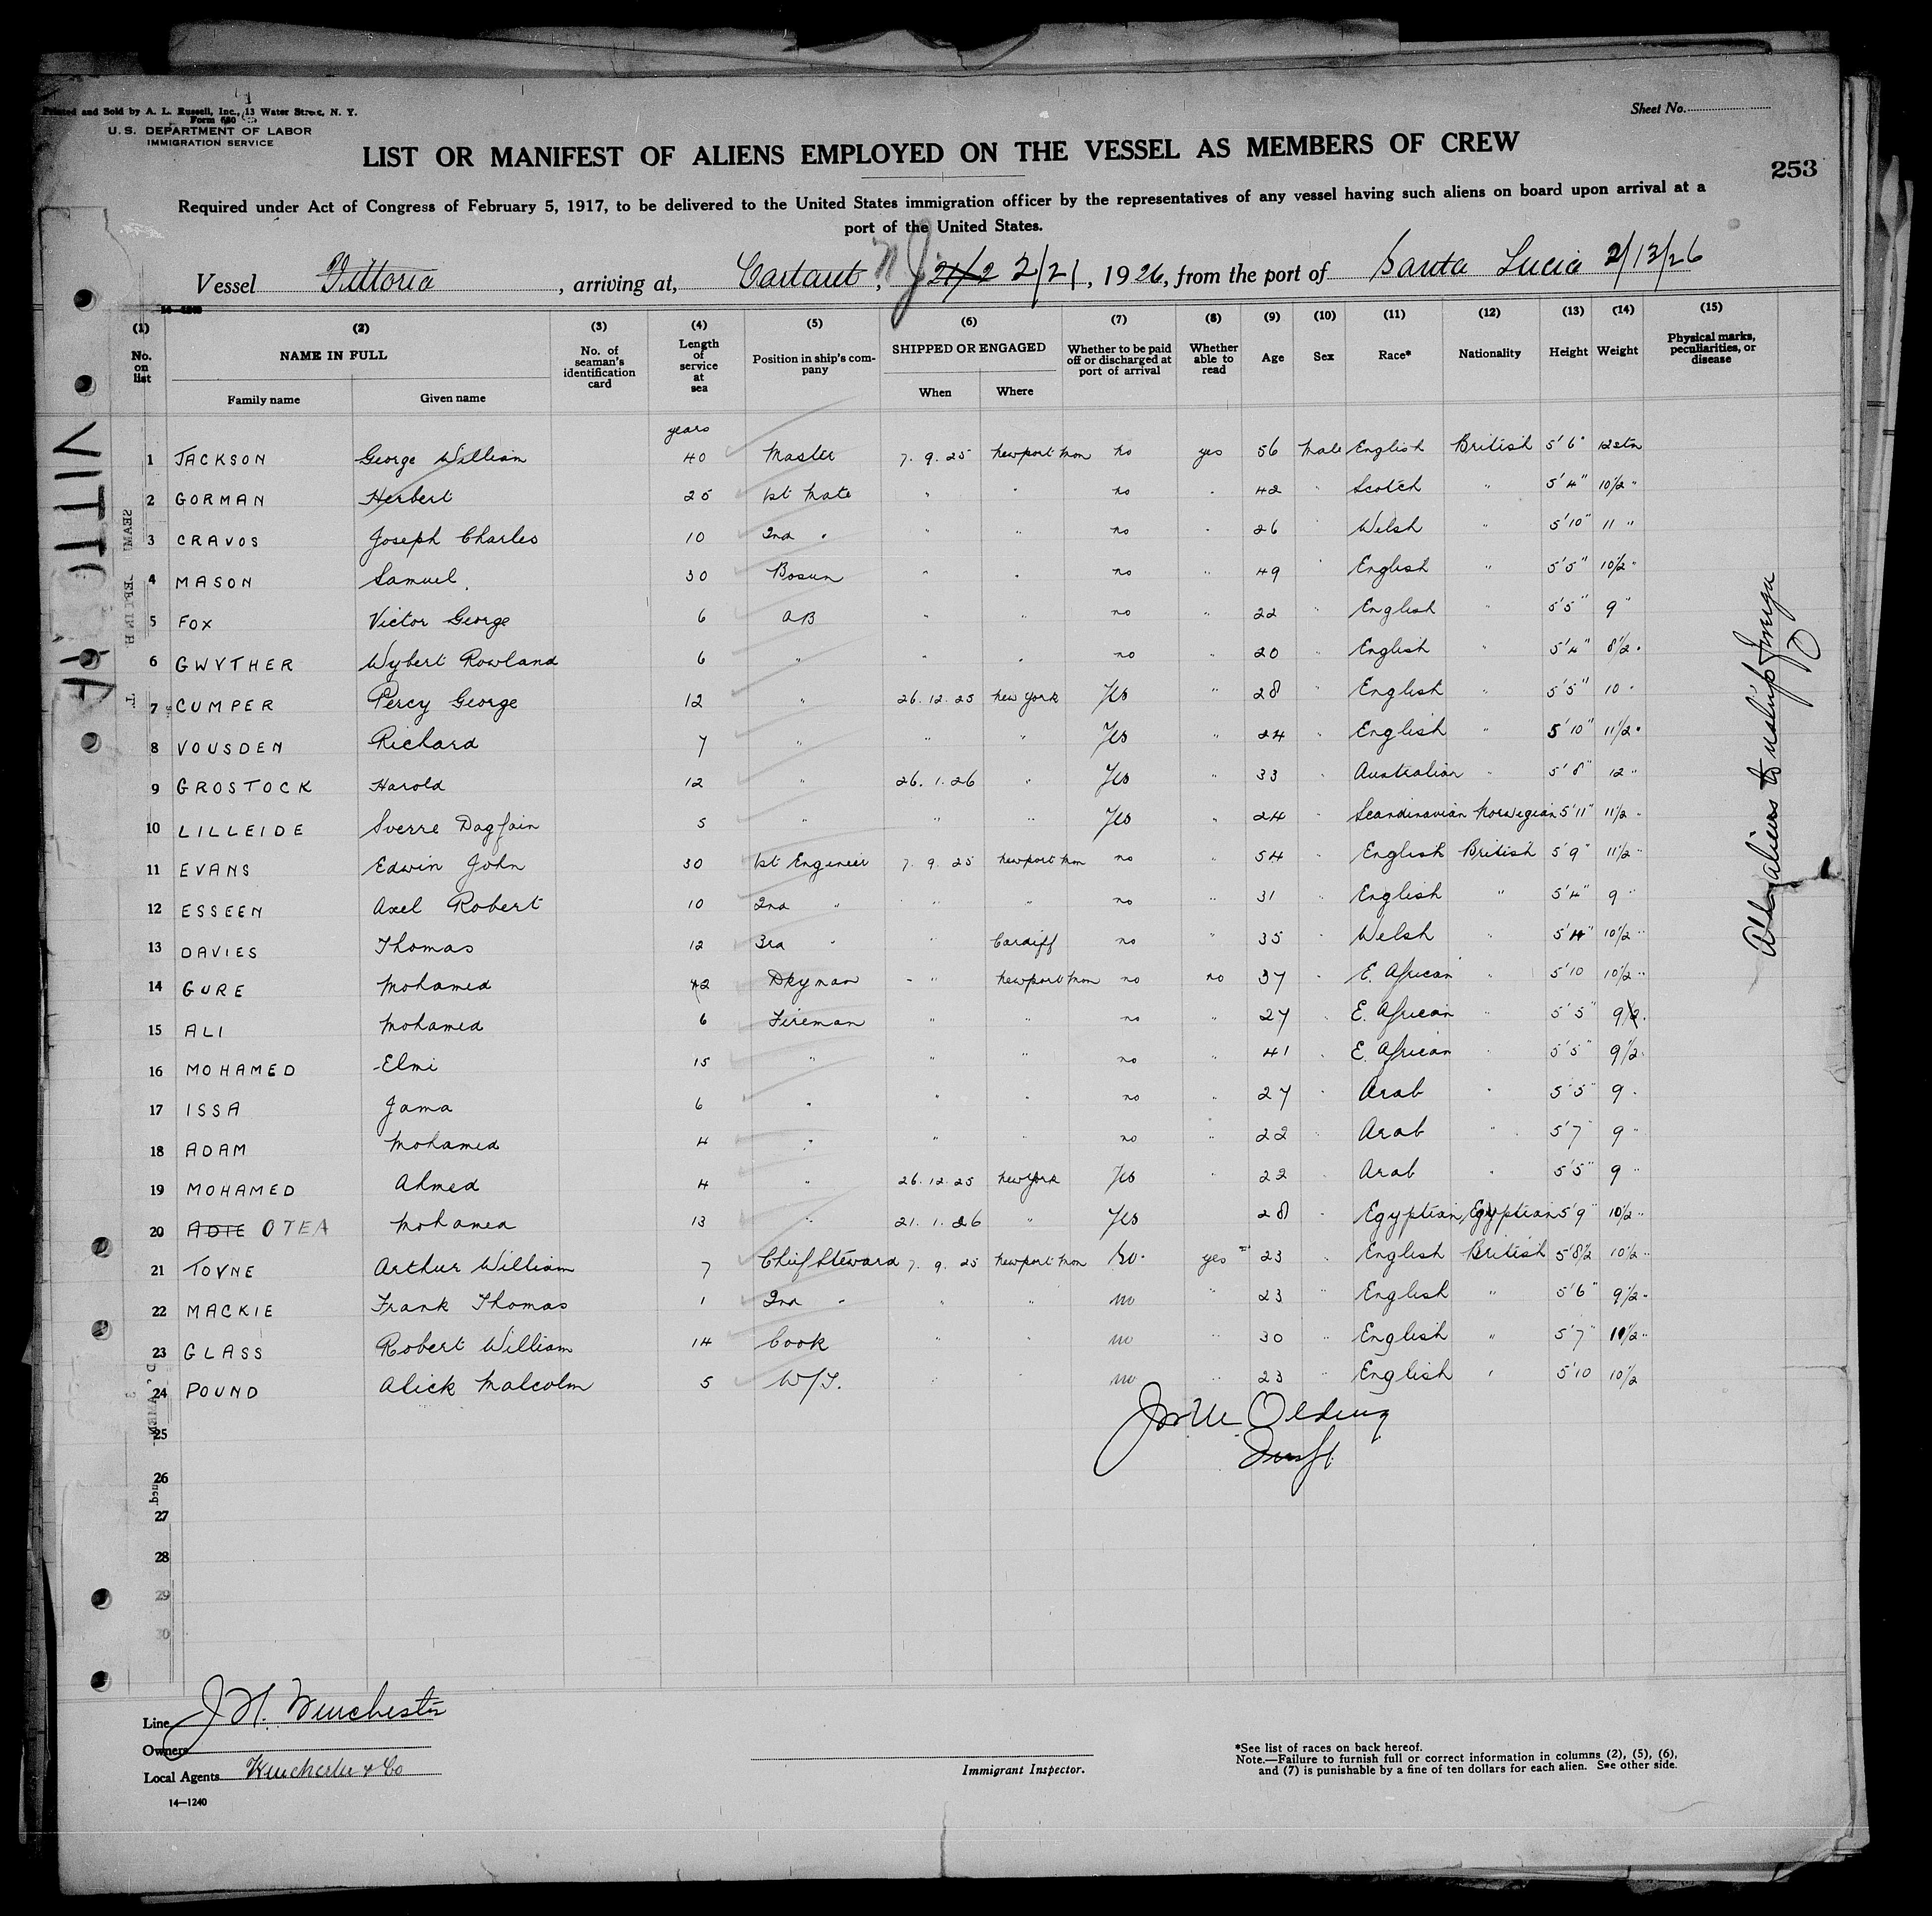 Printed and Sold by A. L. Russell, Inc., 13 Water Street, N. Y.
Form 680
U. S. DEPARTMENT OF LABOR
IMMIGRATION SERVICE
Sheet No.
LIST OR MANIFEST OF ALIENS EMPLOYED ON THE VESSEL AS MEMBERS OF CREW
253
Required under Act of Congress of February 5, 1917, to be delivered to the United States immigration officer by the representatives of any vessel having such aliens on board upon arrival at a
port of the United States.
Vessel Vittoria, arriving at, Cartaut, NJ 21/2 2/21, 1926, from the port of Santa Lucia 2/13/26
(1) (2) (3) (4) (5) (6) (7) (8) (9) (10) (11) (12) (13) (14) (15)
No. on list NAME IN FULL No. of seaman's identification card Length of service at sea Position in ship's company SHIPPED OR ENGAGED Whether to be paid off or discharged at port of arrival Whether able to read Age Sex Race* Nationality Height Weight Physical marks, peculiarities, or disease
Family name Given name When Where
years
1 JACKSON George William 40 Master 7. 9. 25 Newport Mon no yes 56 Male English British 5'6" 12 stn
2 GORMAN Herbert 25 1st Mate " " no " 42 " Scotch " 5'4" 10 1/2 "
3 CRAVOS Joseph Charles 10 2nd " " " no " 26 " Welsh " 5'10" 11 "
4 MASON Samuel. 30 Bosun " " no " 49 " English " 5'5" 10 1/2 "
5 FOX Victor George 6 AB " " no " 22 " English " 5'5" 9 "
6 GWYTHER Wybert Rowland 6 " " " no " 20 " English " 5'4" 8 1/2 "
7 CUMPER Percy George 12 " 26. 12. 25 New York Yes " 28 " English " 5'5" 10 "
8 VOUSDEN Richard 7 " " " Yes " 24 " English " 5'10" 11 1/2 "
9 GROSTOCK Harold 12 " 26. 1. 26 " Yes " 33 " Australian " 5'8" 12 "
10 LILLEIDE Sverre Dagfain 5 " " " Yes " 24 " Scandinavian Norwegian 5'11" 11 1/2 "
11 EVANS Edwin John 30 1st Engineer 7. 9. 25 Newport Mon no " 54 " English British 5'9" 11 1/2 "
12 ESSEEN Axel Robert 10 2nd " " " no " 31 " English " 5'4" 9 "
13 DAVIES Thomas 12 3rd " " Cardiff no " 35 " Welsh " 5'4" 10 1/2 "
14 GURE Mohamed 42 Dkyman " Newport Mon no no 37 " E. African " 5'10 10 1/2 "
15 ALI Mohamed 6 Fireman " " no " 27 " E. African " 5'5" 9 1/2 "
16 MOHAMED Elmi 15 " " " no " 41 " E. African " 5'5" 9 1/2 "
17 ISSA Jama 6 " " " no " 27 " Arab " 5'5" 9 "
18 ADAM Mohamed 4 " " " no " 22 " Arab " 5'7" 9 "
19 MOHAMED Ahmed 4 " 26. 12. 25 New York Yes " 22 " Arab " 5'5" 9 "
20 ADIE OTEA Mohamed 13 " 21. 1. 26 " Yes 28 " Egyptian Egyptian 5'9" 10 1/2 "
21 TOVNE Arthur William 7 Chief Steward 7. 9. 25 Newport Mon no. yes 23 " English British 5'8 1/2 10 1/2 "
22 MACKIE Frank Thomas 1 2nd " " " no " 23 " English " 5'6" 9 1/2 "
23 GLASS Robert William 14 Cook " " no " 30 " English " 5'7" 10 1/2 "
24 POUND Alick Malcolm 5 W/T. " " no " 23 " English " 5'10 10 1/2
25
26
27
28
29
30
VITTORIA
All aliens to reship foreign
Line J H. Winchester
Owners
Local Agents Winchester & Co
Immigrant Inspector.
*See list of races on back hereof.
Note.—Failure to furnish full or correct information in columns (2), (5), (6),
and (7) is punishable by a fine of ten dollars for each alien. See other side.
14—1240